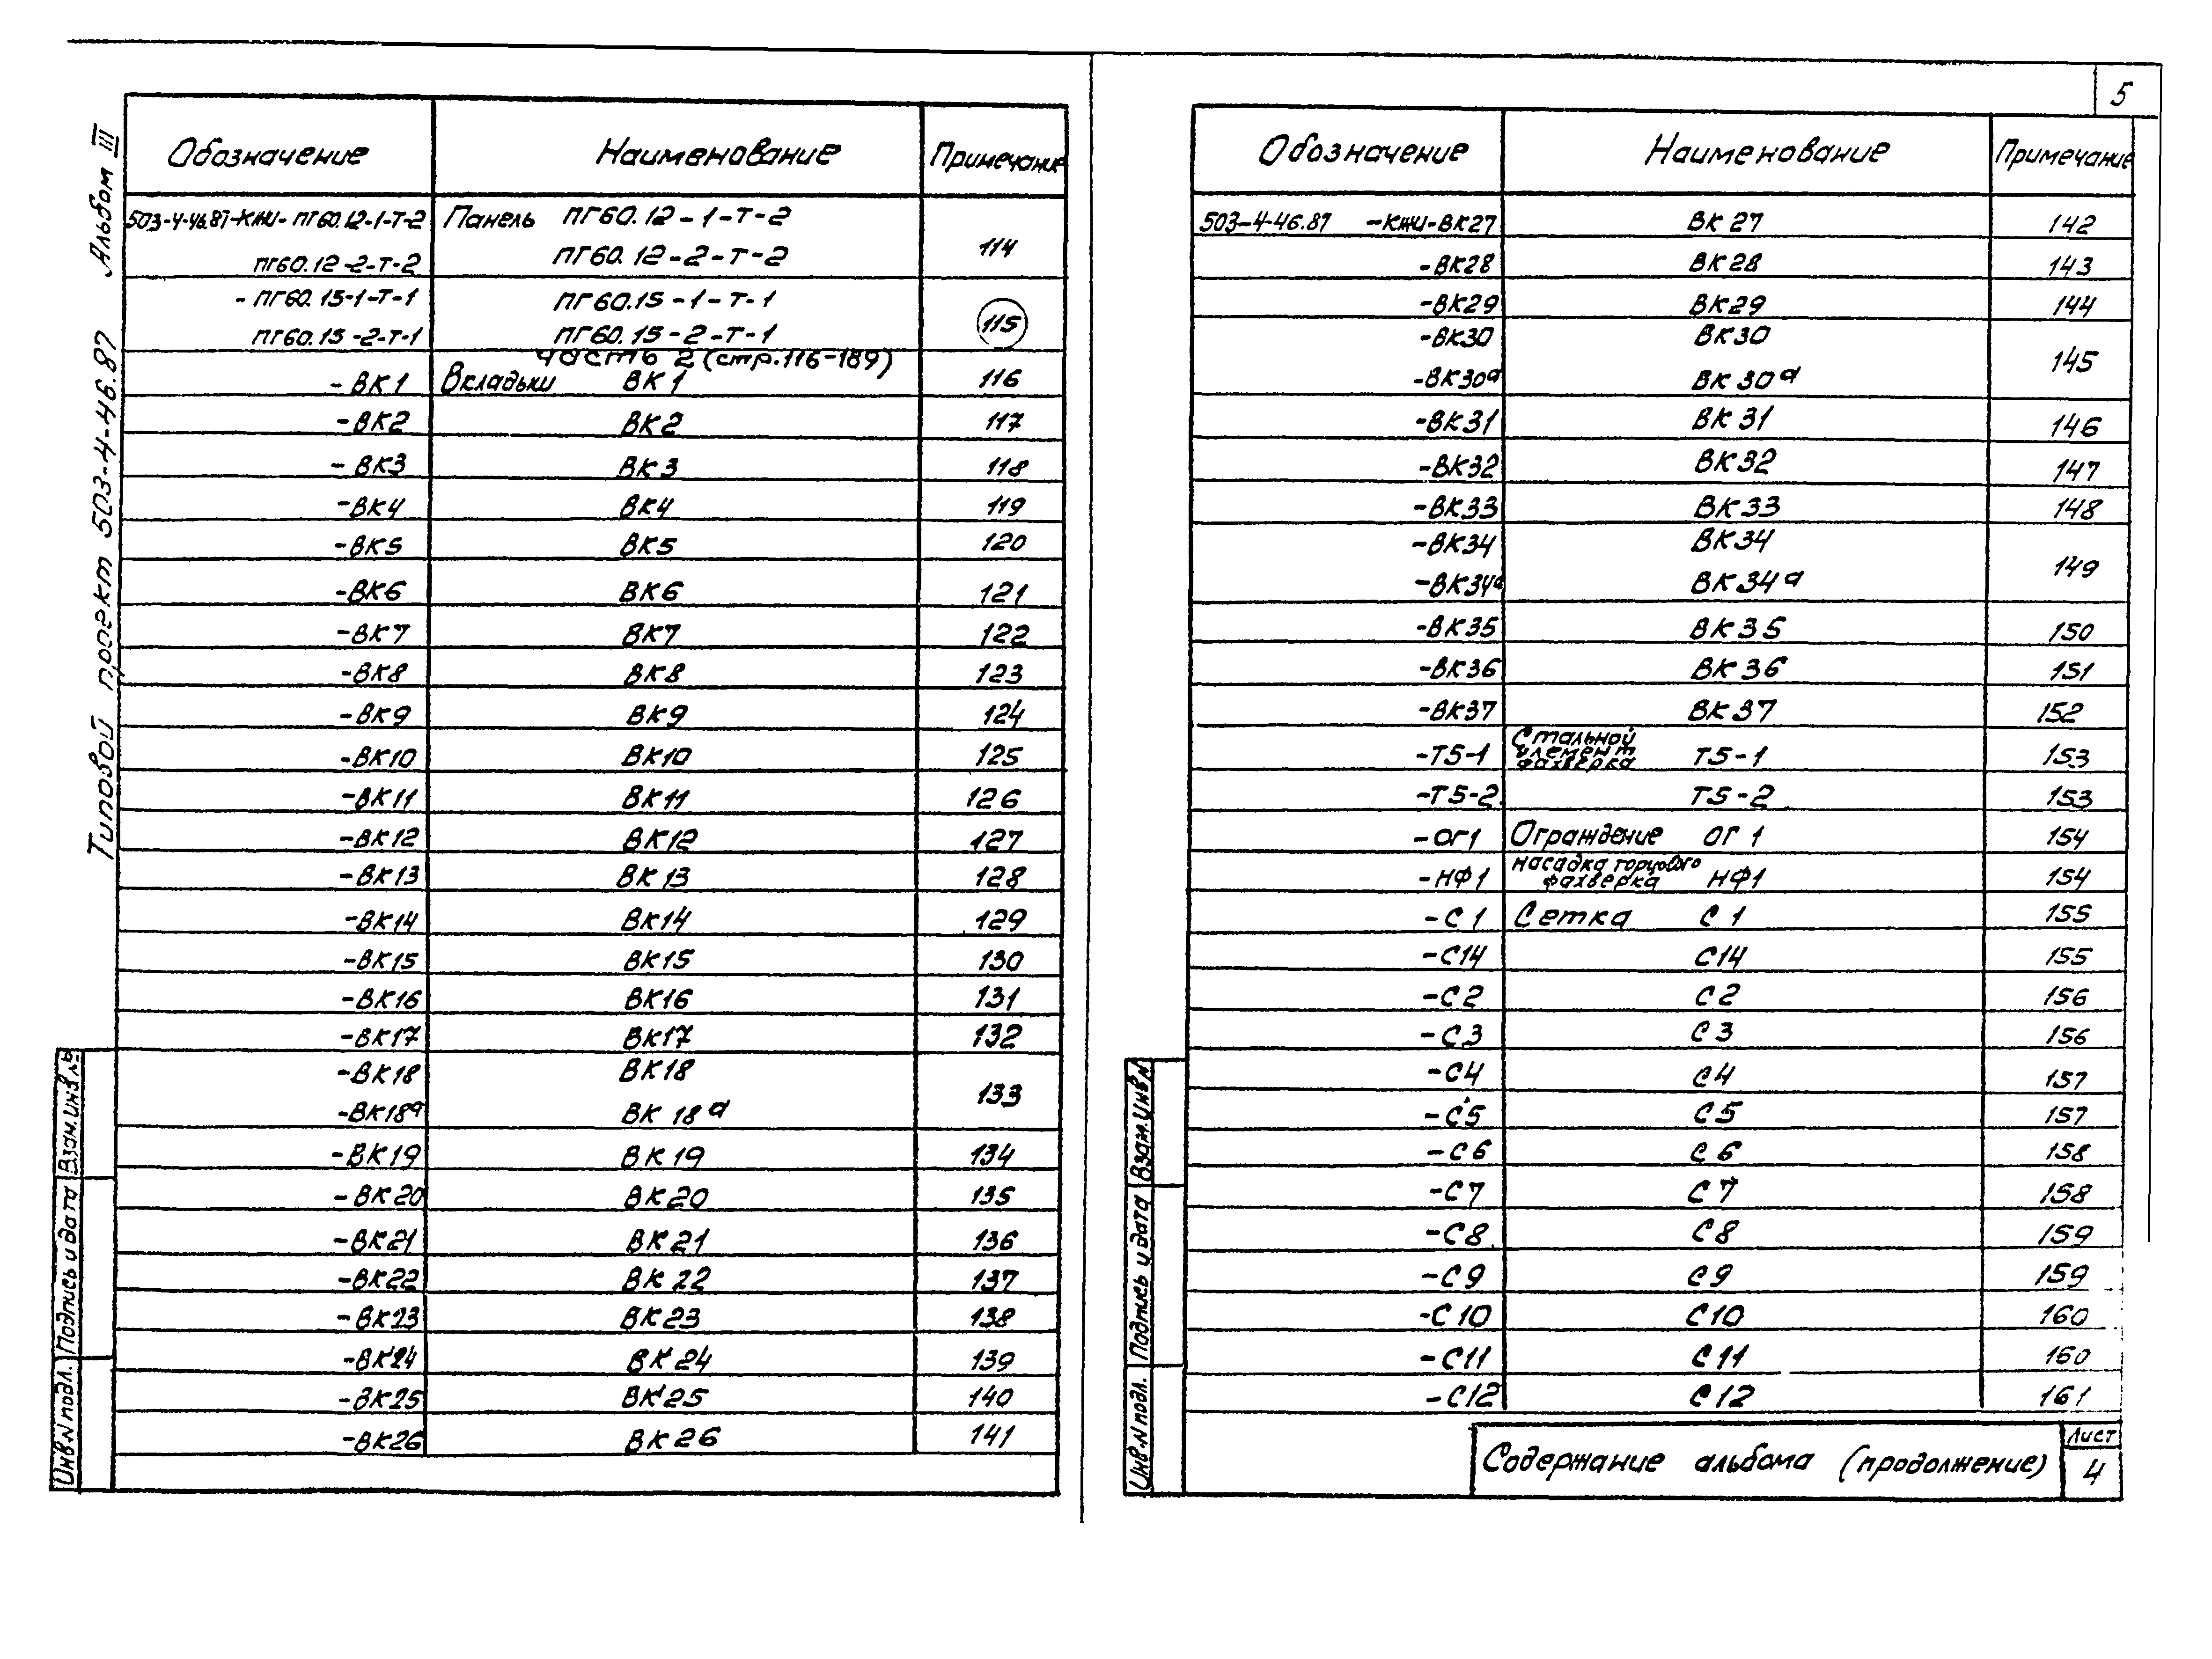 5
Типовой проект 503-4-46.87 Альбом III
Обозначение Наименование Примечание
503-4-46.87-КЖИ- ПГ60.12-1-Т-2 Панель ПГ60.12-1-Т-2
114
ПГ60.12-2-Т-2 ПГ60.12-2-Т-2
- ПГ60.15-1-Т-1 ПГ60.15-1-Т-1
115
ПГ60.15-2-Т-1 ПГ60.15-2-Т-1
часть 2 (стр.116-189)
-ВК1 Вкладыш ВК1 116
-ВК2 ВК2 117
-ВК3 ВК3 118
-ВК4 ВК4 119
-ВК5 ВК5 120
-ВК6 ВК6 121
-ВК7 ВК7 122
-ВК8 ВК8 123
-ВК9 ВК9 124
-ВК10 ВК10 125
-ВК11 ВК11 126
-ВК12 ВК12 127
-ВК13 ВК13 128
-ВК14 ВК14 129
-ВК15 ВК15 130
-ВК16 ВК16 131
-ВК17 ВК17 132
-ВК18 ВК18
133
-ВК18а ВК18а
-ВК19 ВК19 134
-ВК20 ВК20 135
-ВК21 ВК21 136
-ВК22 ВК22 137
-ВК23 ВК23 138
-ВК24 ВК24 139
-ВК25 ВК25 140
-ВК26 ВК26 141
Инв.N подл. Подпись и дата Взам.инв.№
Обозначение Наименование Примечание
503-4-46.87 -КЖИ-ВК27 ВК27 142
-ВК28 ВК28 143
-ВК29 ВК29 144
-ВК30 ВК30
145
-ВК30а ВК30а
-ВК31 ВК31 146
-ВК32 ВК32 147
-ВК33 ВК33 148
-ВК34 ВК34
149
-ВК34а ВК34а
-ВК35 ВК35 150
-ВК36 ВК36 151
-ВК37 ВК37 152
Стальной
элемент
фахверка
-Т5-1 Т5-1 153
-Т5-2 Т5-2 153
-ОГ1 Ограждение ОГ1 154
насадка торцового
фахверка
-НФ1 НФ1 154
-С1 Сетка С1 155
-С14 С14 155
-С2 С2 156
-С3 С3 156
-С4 С4 157
-С5 С5 157
-С6 С6 158
-С7 С7 158
-С8 С8 159
-С9 С9 159
-С10 С10 160
-С11 С11 160
-С12 С12 161
Инв.N подл. Подпись и дата Взам.инв.N
Содержание альбома (продолжение)
Лист
4